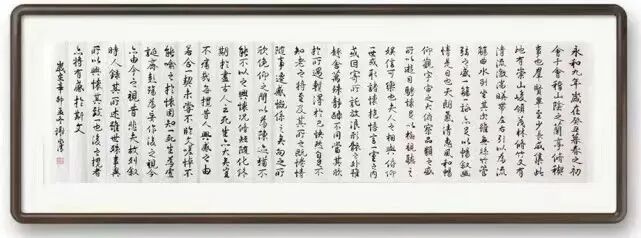 永和九年歲在癸丑暮春之初
會于會稽山陰之蘭亭脩稧
事也羣賢畢至少長咸集此
地有崇山峻領茂林脩竹又有
清流激湍暎帶左右引以為流
觴曲水列坐其次雖無絲竹管
弦之盛一觴一詠亦足以暢敘幽
情是日也天朗氣清惠風和暢
仰觀宇宙之大俯察品類之盛
所以遊目騁懷足以極視聽之
娛信可樂也夫人之相與俯仰
一世或取諸懷抱悟言一室之內
或因寄所託放浪形骸之外雖
趣舍萬殊靜躁不同當其欣
於所遇暫得於己快然自足不
知老之將至及其所之既惓情
隨事遷感慨係之矣向之所
欣俛仰之閒以為陳迹猶不
能不以之興懷況脩短隨化終
期於盡古人云死生亦大矣豈
不痛哉每攬昔人興感之由
若合一契未嘗不臨文嗟悼不
能喻之於懷固知一死生為虛
誕齊彭殤為妄作後之視今
亦由今之視昔悲夫故列敘
時人錄其所述雖世殊事異
所以興懷其致一也後之攬者
亦將有感於斯文